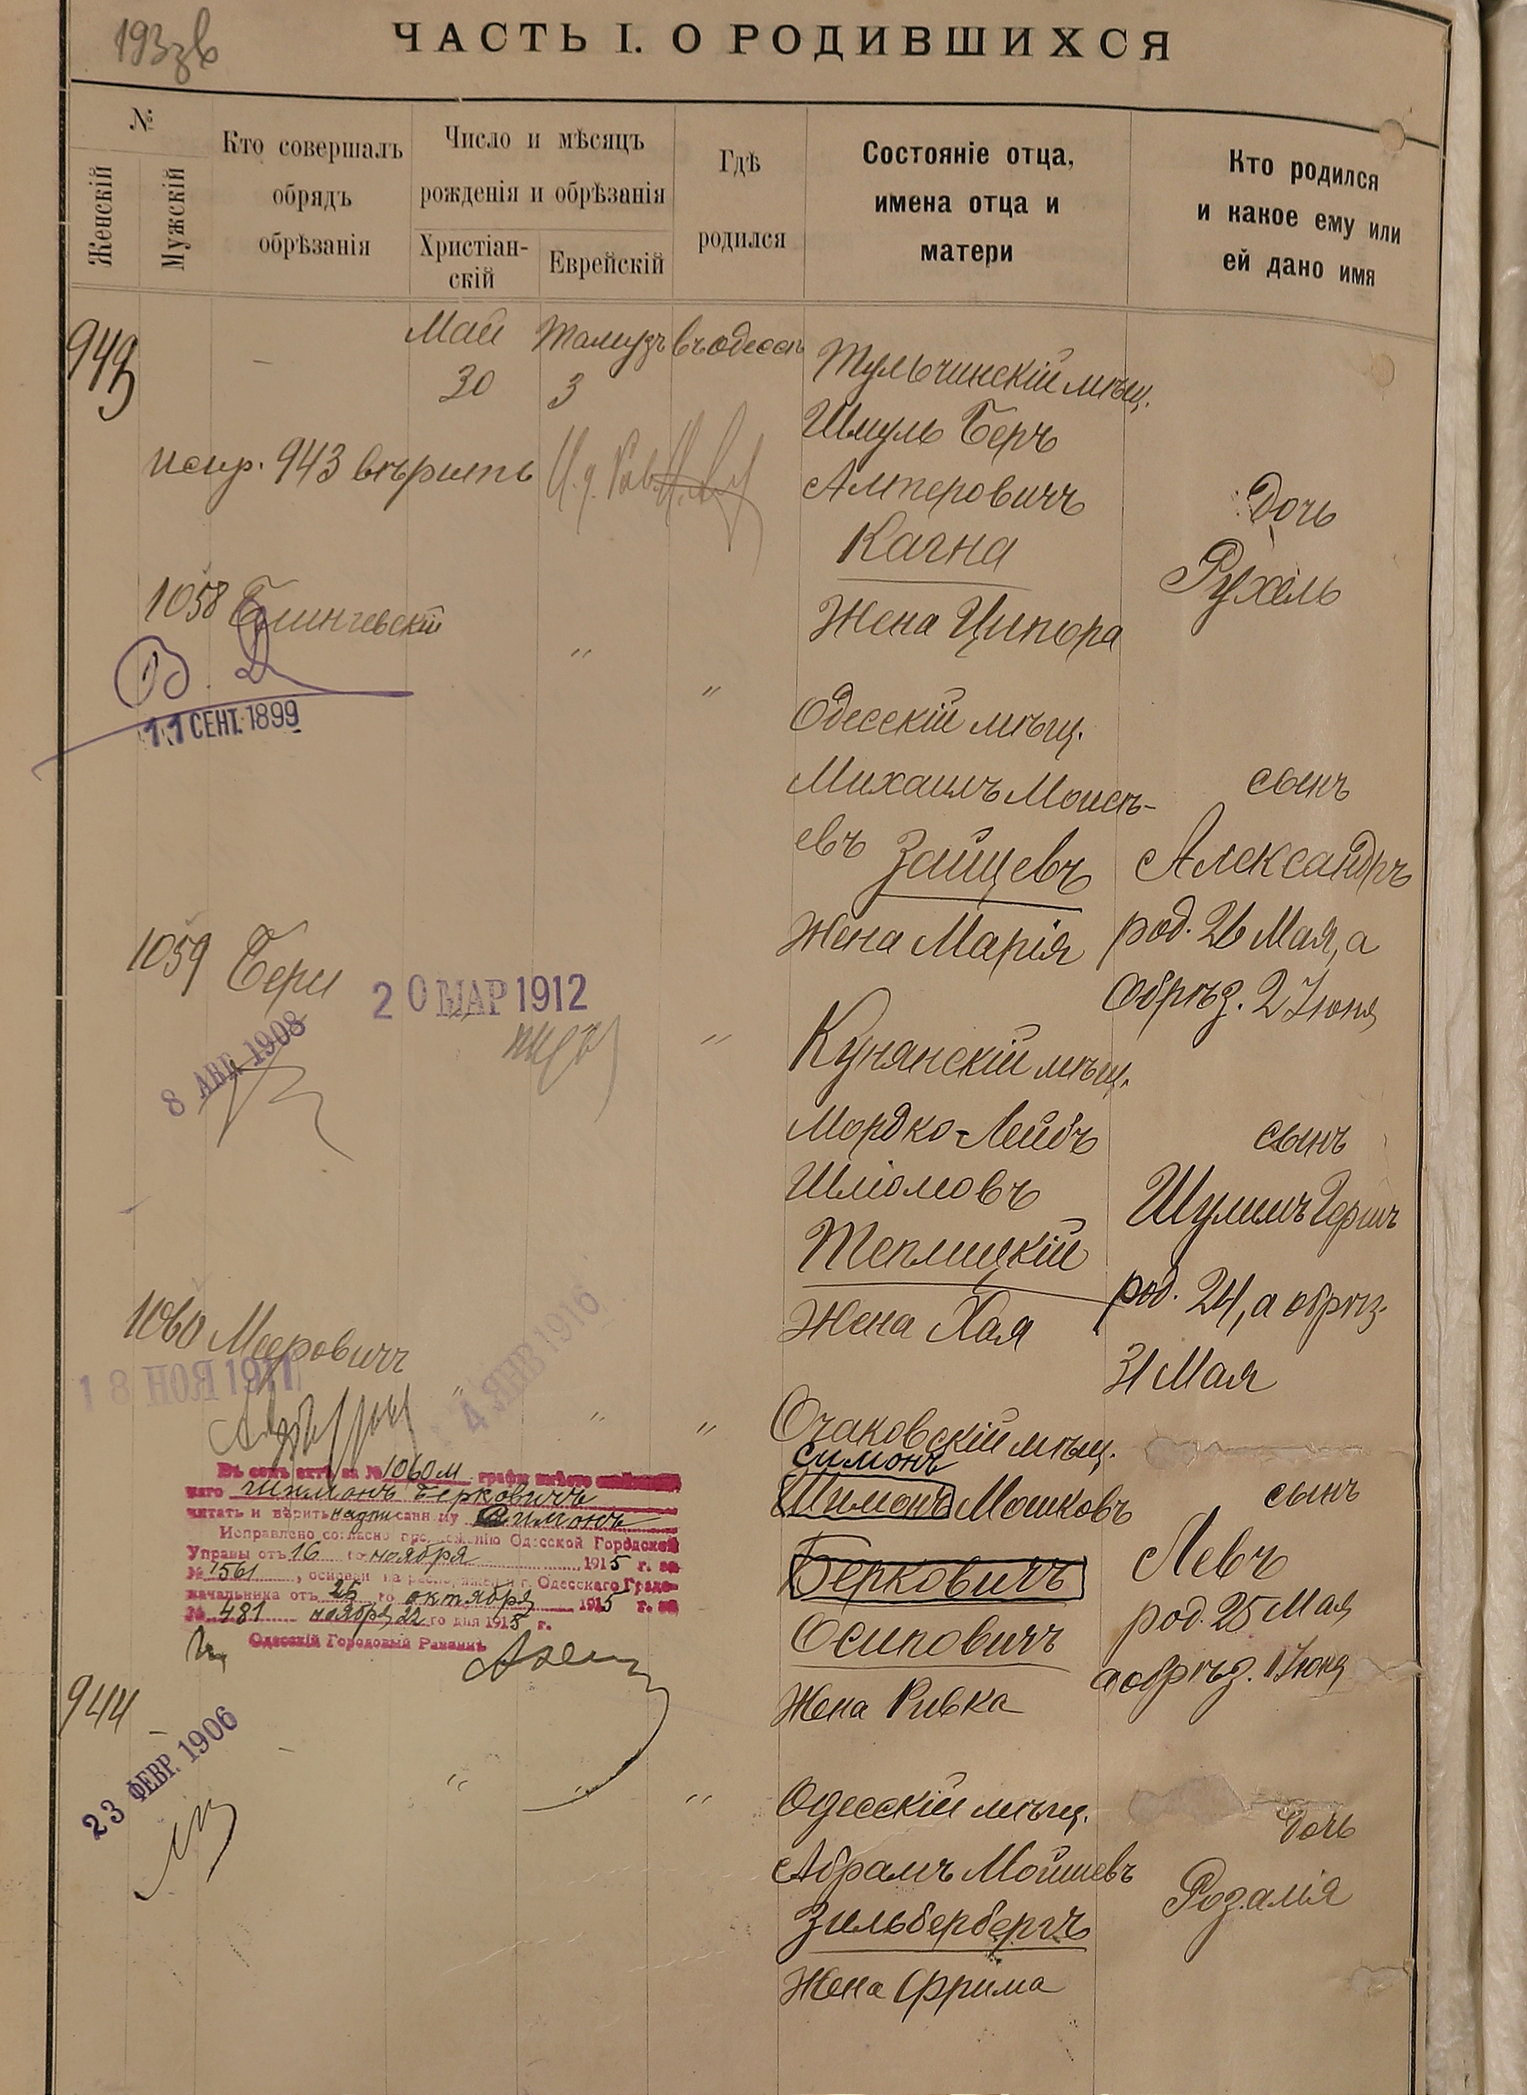 193 зв
ЧАСТЬ I. О РОДИВШИХСЯ
№
Женскій
Мужскій
Кто совершалъ
обрядъ
обрѣзанія
Число и мѣсяцъ
рожденія и обрѣзанія
Христіан-
скій
Еврейскій
Гдѣ
родился
Состояніе отца,
имена отца и
матери
Кто родился
и какое ему или
ей дано имя
943
Май
30
Тамузъ
3
въ Одессѣ
Тульчинскій мѣщ.
Шмуль Беръ
Альтеровичъ
Кагна
Жена Ципора
Дочь
Рухель
испр. 943 вѣрить
И. д. Рав.
1058
11 СЕНТ. 1899
"
"
Одесскій мѣщ.
Михаилъ Моисѣ-
евъ Зайцевъ
Жена Марія
сынъ
Александръ
род. 26 Мая, а
обрѣз. 2 Іюня
1059 Бери
20 МАР 1912
8 АВГ. 1908
"
Кунянскій мѣщ.
Мордко-Лейбъ
Шліомовъ
Теплицкій
Жена Хая
сынъ
Шулимъ Герш
род. 24, а обрѣз.
31 Мая
1060 Мееровичъ
18 НОЯ 1911
4 ЯНВ 1916
"
"
"
Очаковскій мѣщ.
Симонъ
Шимонъ Мошковъ
Берковичъ
Осиповичъ
Жена Ривка
сынъ
Левъ
род. 25 Мая
а обрѣз. 1 Іюня
Въ семъ актѣ за № 1060 м графы вмѣсто
наго Шимонъ Берковичъ
читать и вѣрить надписанному Симонъ
Исправлено согласно предложенію Одесской Городской
Управы отъ 16 го ноября 1915 г. за
№ 1561, основан. на распоряженіи г. Одесскаго Градо-
начальника отъ 25 го октября 1915 г. за
№ 481 ноября 22 го дня 1915 г.
Одесскій Городовый Раввинъ
944
23 ФЕВР. 1906
"
"
"
Одесскій мѣщ.
Абрамъ Мойшевъ
Зильбербергъ
Жена Фрима
дочь
Розалія